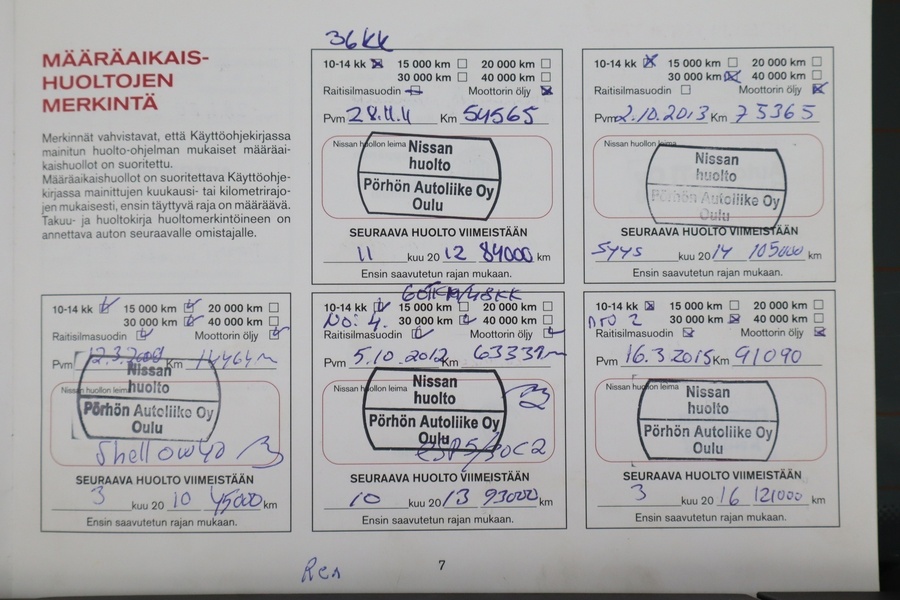 MÄÄRÄAIKAIS-
HUOLTOJEN
MERKINTÄ
Merkinnät vahvistavat, että Käyttöohjekirjassa
mainitun huolto-ohjelman mukaiset määräai-
kaishuollot on suoritettu.
Määräaikaishuollot on suoritettava Käyttöohje-
kirjassa mainittujen kuukausi- tai kilometrirajo-
jen mukaisesti, ensin täyttyvä raja on määräävä.
Takuu- ja huoltokirja huoltomerkintöineen on
annettava auton seuraavalle omistajalle.
36kk
10-14 kk 15 000 km 20 000 km
30 000 km 40 000 km
Raitisilmasuodin Moottorin öljy
Pvm 28.11.11 Km 54565
Nissan huollon leima
Nissan
huolto
Pörhön Autoliike Oy
Oulu
SEURAAVA HUOLTO VIIMEISTÄÄN
11 kuu 20 12 84000 km
Ensin saavutetun rajan mukaan.
10-14 kk 15 000 km 20 000 km
30 000 km 40 000 km
Raitisilmasuodin Moottorin öljy
Pvm 2.10.2013 Km 75365
Nissan huollon leima
Nissan
huolto
Pörhön Autoliike Oy
Oulu
SEURAAVA HUOLTO VIIMEISTÄÄN
syys kuu 20 14 105000 km
Ensin saavutetun rajan mukaan.
10-14 kk 15 000 km 20 000 km
30 000 km 40 000 km
Raitisilmasuodin Moottorin öljy
Pvm Km
Nissan huollon leima
Nissan
huolto
Pörhön Autoliike Oy
Oulu
Shell 0W40
SEURAAVA HUOLTO VIIMEISTÄÄN
3 kuu 20 10 45000 km
Ensin saavutetun rajan mukaan.
60TKM/48KK
10-14 kk 15 000 km 20 000 km
No: 4. 30 000 km 40 000 km
Raitisilmasuodin Moottorin öljy
Pvm 5.10.2012 Km 63339
Nissan huollon leima
Nissan
huolto
Pörhön Autoliike Oy
Oulu
SEURAAVA HUOLTO VIIMEISTÄÄN
10 kuu 20 13 93000 km
Ensin saavutetun rajan mukaan.
10-14 kk 15 000 km 20 000 km
30 000 km 40 000 km
Raitisilmasuodin Moottorin öljy
Pvm 16.3 2015 Km 91090
Nissan huollon leima
Nissan
huolto
Pörhön Autoliike Oy
Oulu
SEURAAVA HUOLTO VIIMEISTÄÄN
3 kuu 20 16 121000 km
Ensin saavutetun rajan mukaan.
7